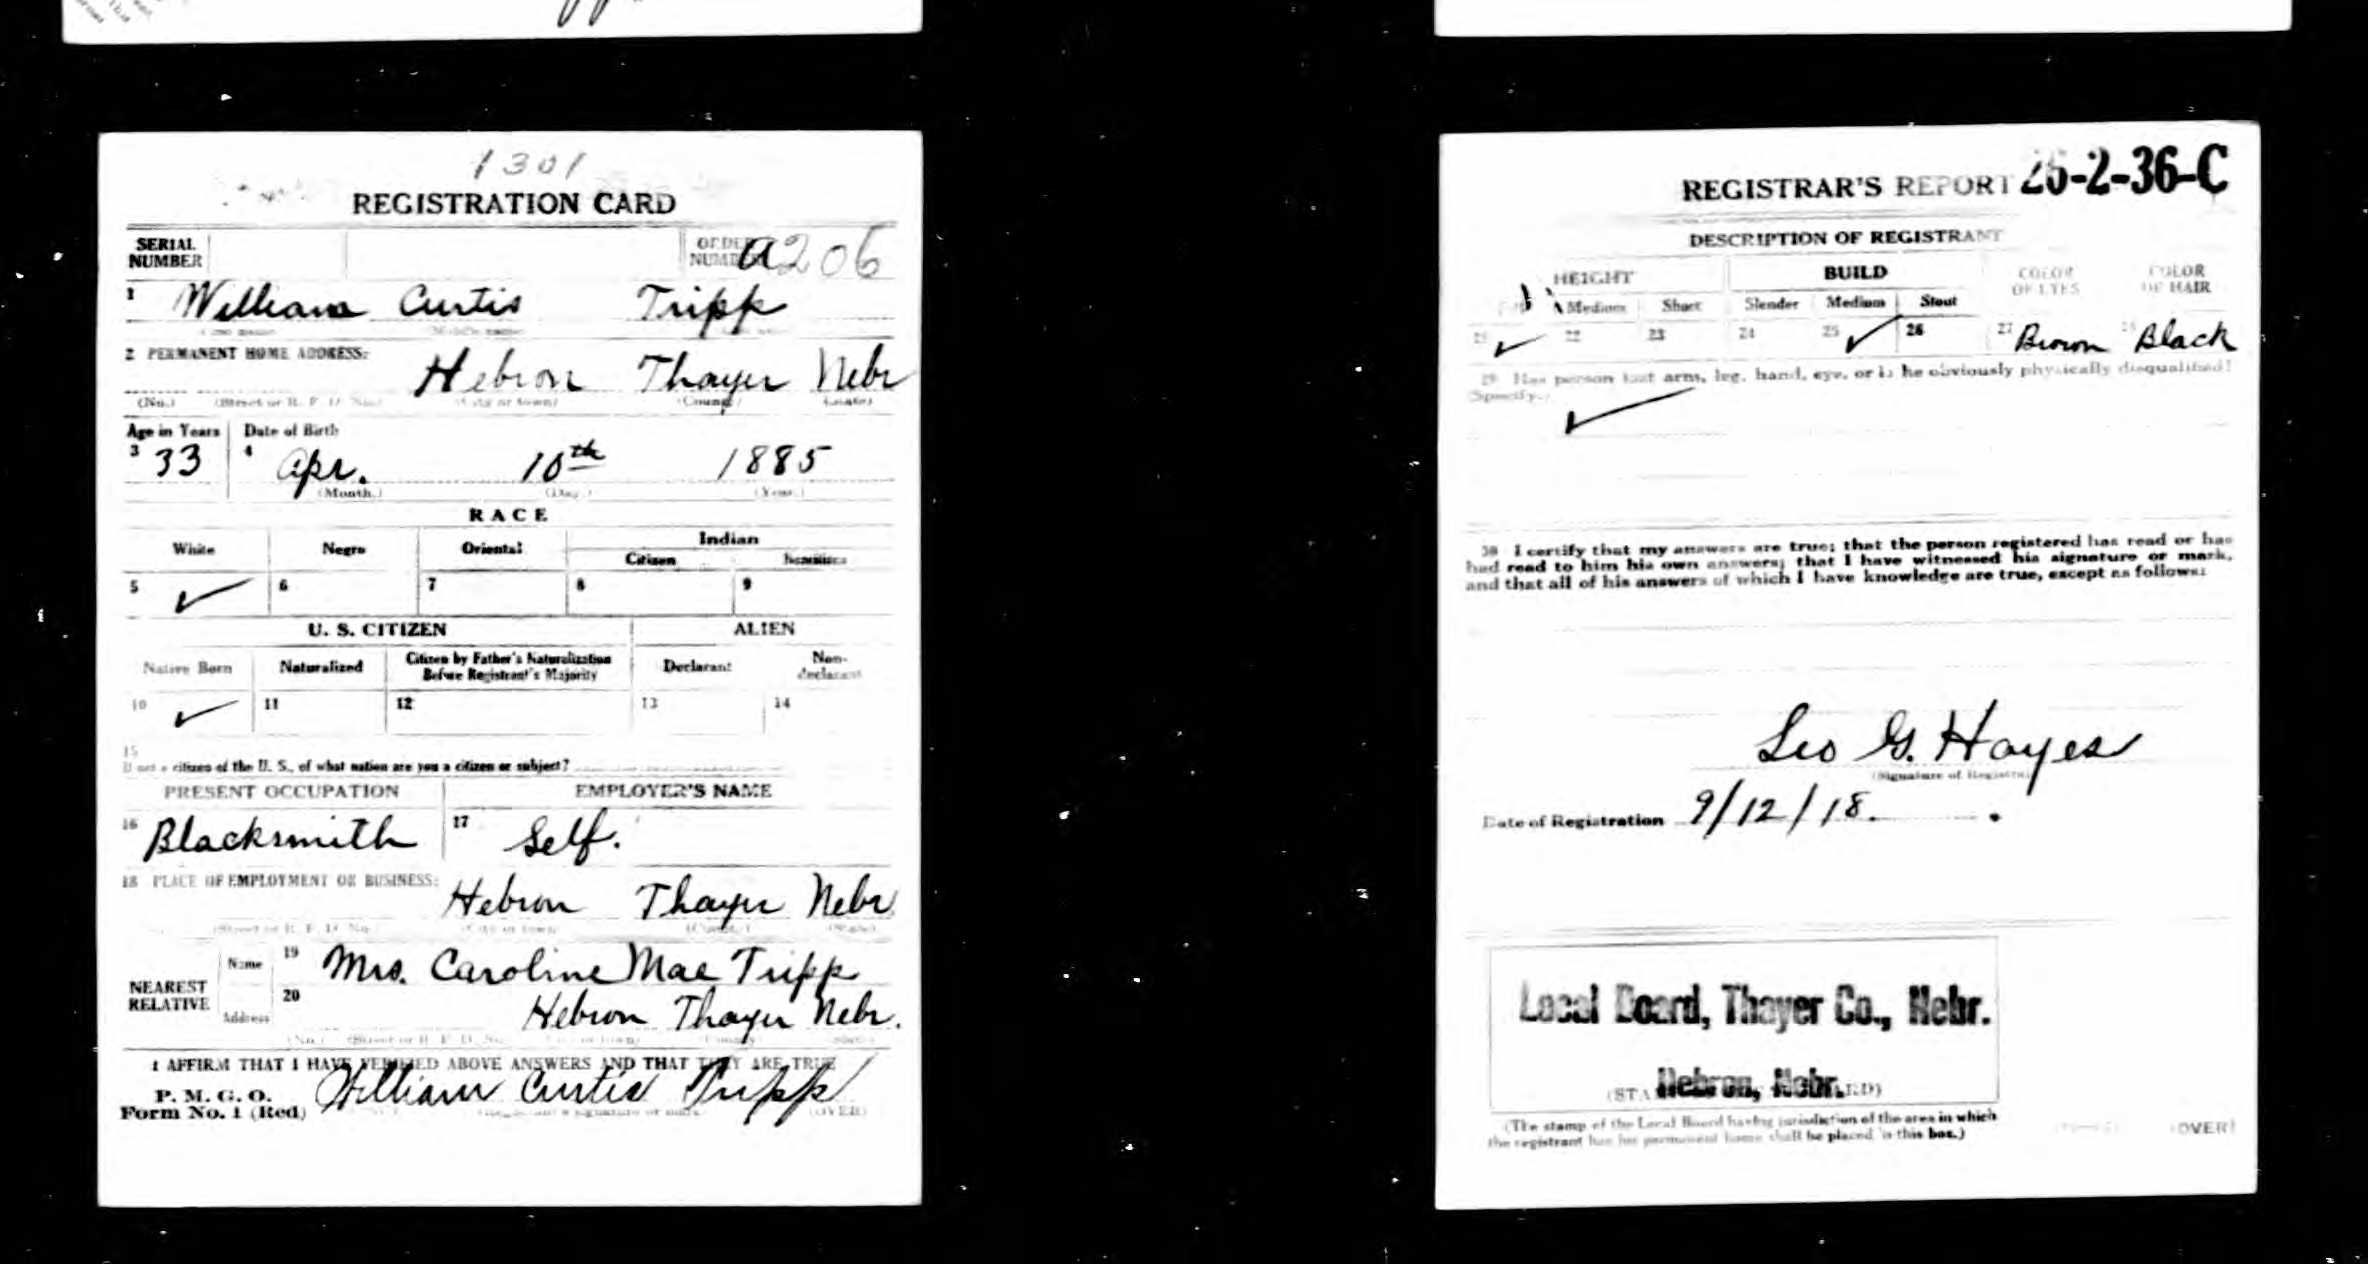 1301
REGISTRATION CARD
SERIAL NUMBER
ORDER NUMBER a206
1 William Curtis Tripp
2 PERMANENT HOME ADDRESS:
Hebron Thayer Nebr
(No.) (Street or R. F. D. No.) (City or town) (County) (State)
Age in Years Date of Birth
3 33 4 Apr. 10th 1885
(Month.) (Day.) (Year.)
RACE
White Negro Oriental Indian
Citizen
5 ✓ 6 7 8 9
U. S. CITIZEN ALIEN
Native Born Naturalized Citizen by Father's Naturalization Before Registrant's Majority Declarant Non-declarant
10 ✓ 11 12 13 14
15
If not a citizen of the U. S., of what nation are you a citizen or subject?
PRESENT OCCUPATION EMPLOYER'S NAME
16 Blacksmith 17 Self.
18 PLACE OF EMPLOYMENT OR BUSINESS:
Hebron Thayer Nebr.
(Street or R. F. D. No.) (City or town) (County) (State)
NEAREST RELATIVE
Name 19 Mrs. Caroline Mae Tripp
Address 20 Hebron Thayer Nebr.
(No.) (Street or R. F. D. No.) (City or town) (County) (State)
I AFFIRM THAT I HAVE VERIFIED ABOVE ANSWERS AND THAT THEY ARE TRUE
P. M. G. O.
Form No. 1 (Red) William Curtis Tripp
(OVER)
REGISTRAR'S REPORT 26-2-36-C
DESCRIPTION OF REGISTRANT
HEIGHT BUILD COLOR OF EYES COLOR OF HAIR
Medium Short Slender Medium Stout
21 ✓ 22 23 24 25 ✓ 26 27 Brown 28 Black
29 Has person lost arm, leg, hand, eye, or is he obviously physically disqualified?
(Specify.)
✓
30 I certify that my answers are true; that the person registered has read or has
had read to him his own answers; that I have witnessed his signature or mark,
and that all of his answers of which I have knowledge are true, except as follows:
Leo G. Hayes
(Signature of Registrar)
Date of Registration 9/12/18.
Local Board, Thayer Co., Nebr.
Hebron, Nebr.
(The stamp of the Local Board having jurisdiction of the area in which
the registrant has his permanent home shall be placed in this box.)
(OVER)